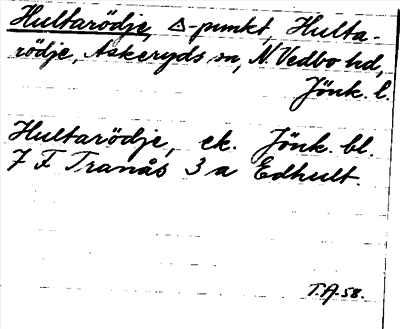 Hultarödje, △-punkt, Hulta-
rödje, Askeryds sn, N. Vedbo hd,
Jönk. l.
Hultarödje, ek. Jönk. bl.
7 F Tranås 3 a Edhult.
T.A. 58.